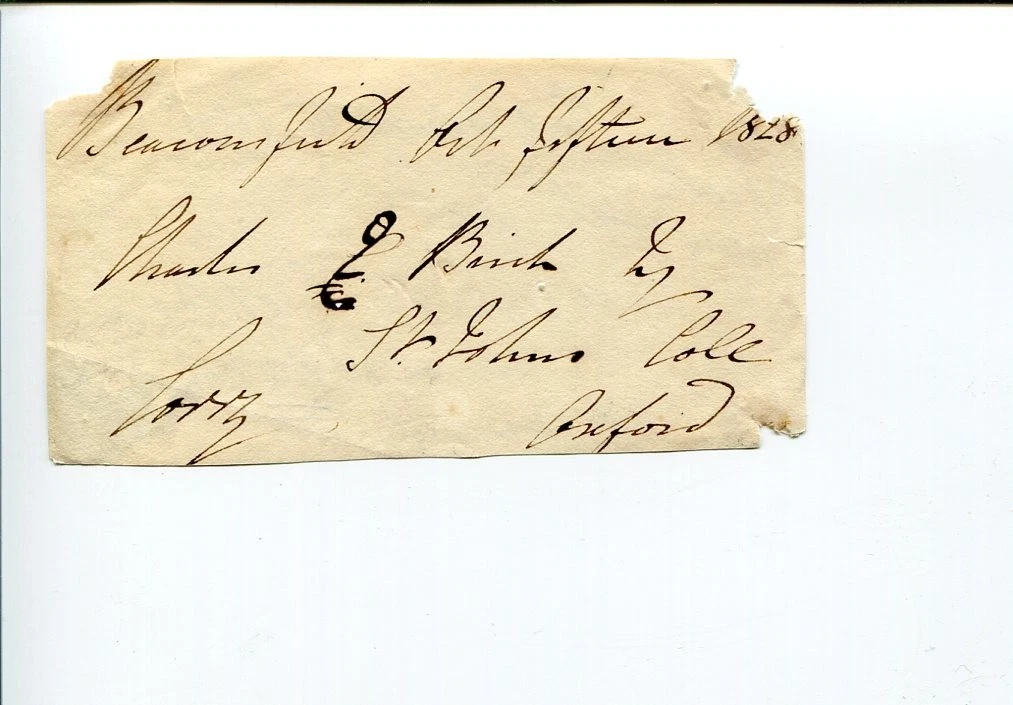 Beaconsfield Oct. fifteen 1828.
Charles E Birch Esq
St. Johns Coll
Oxford